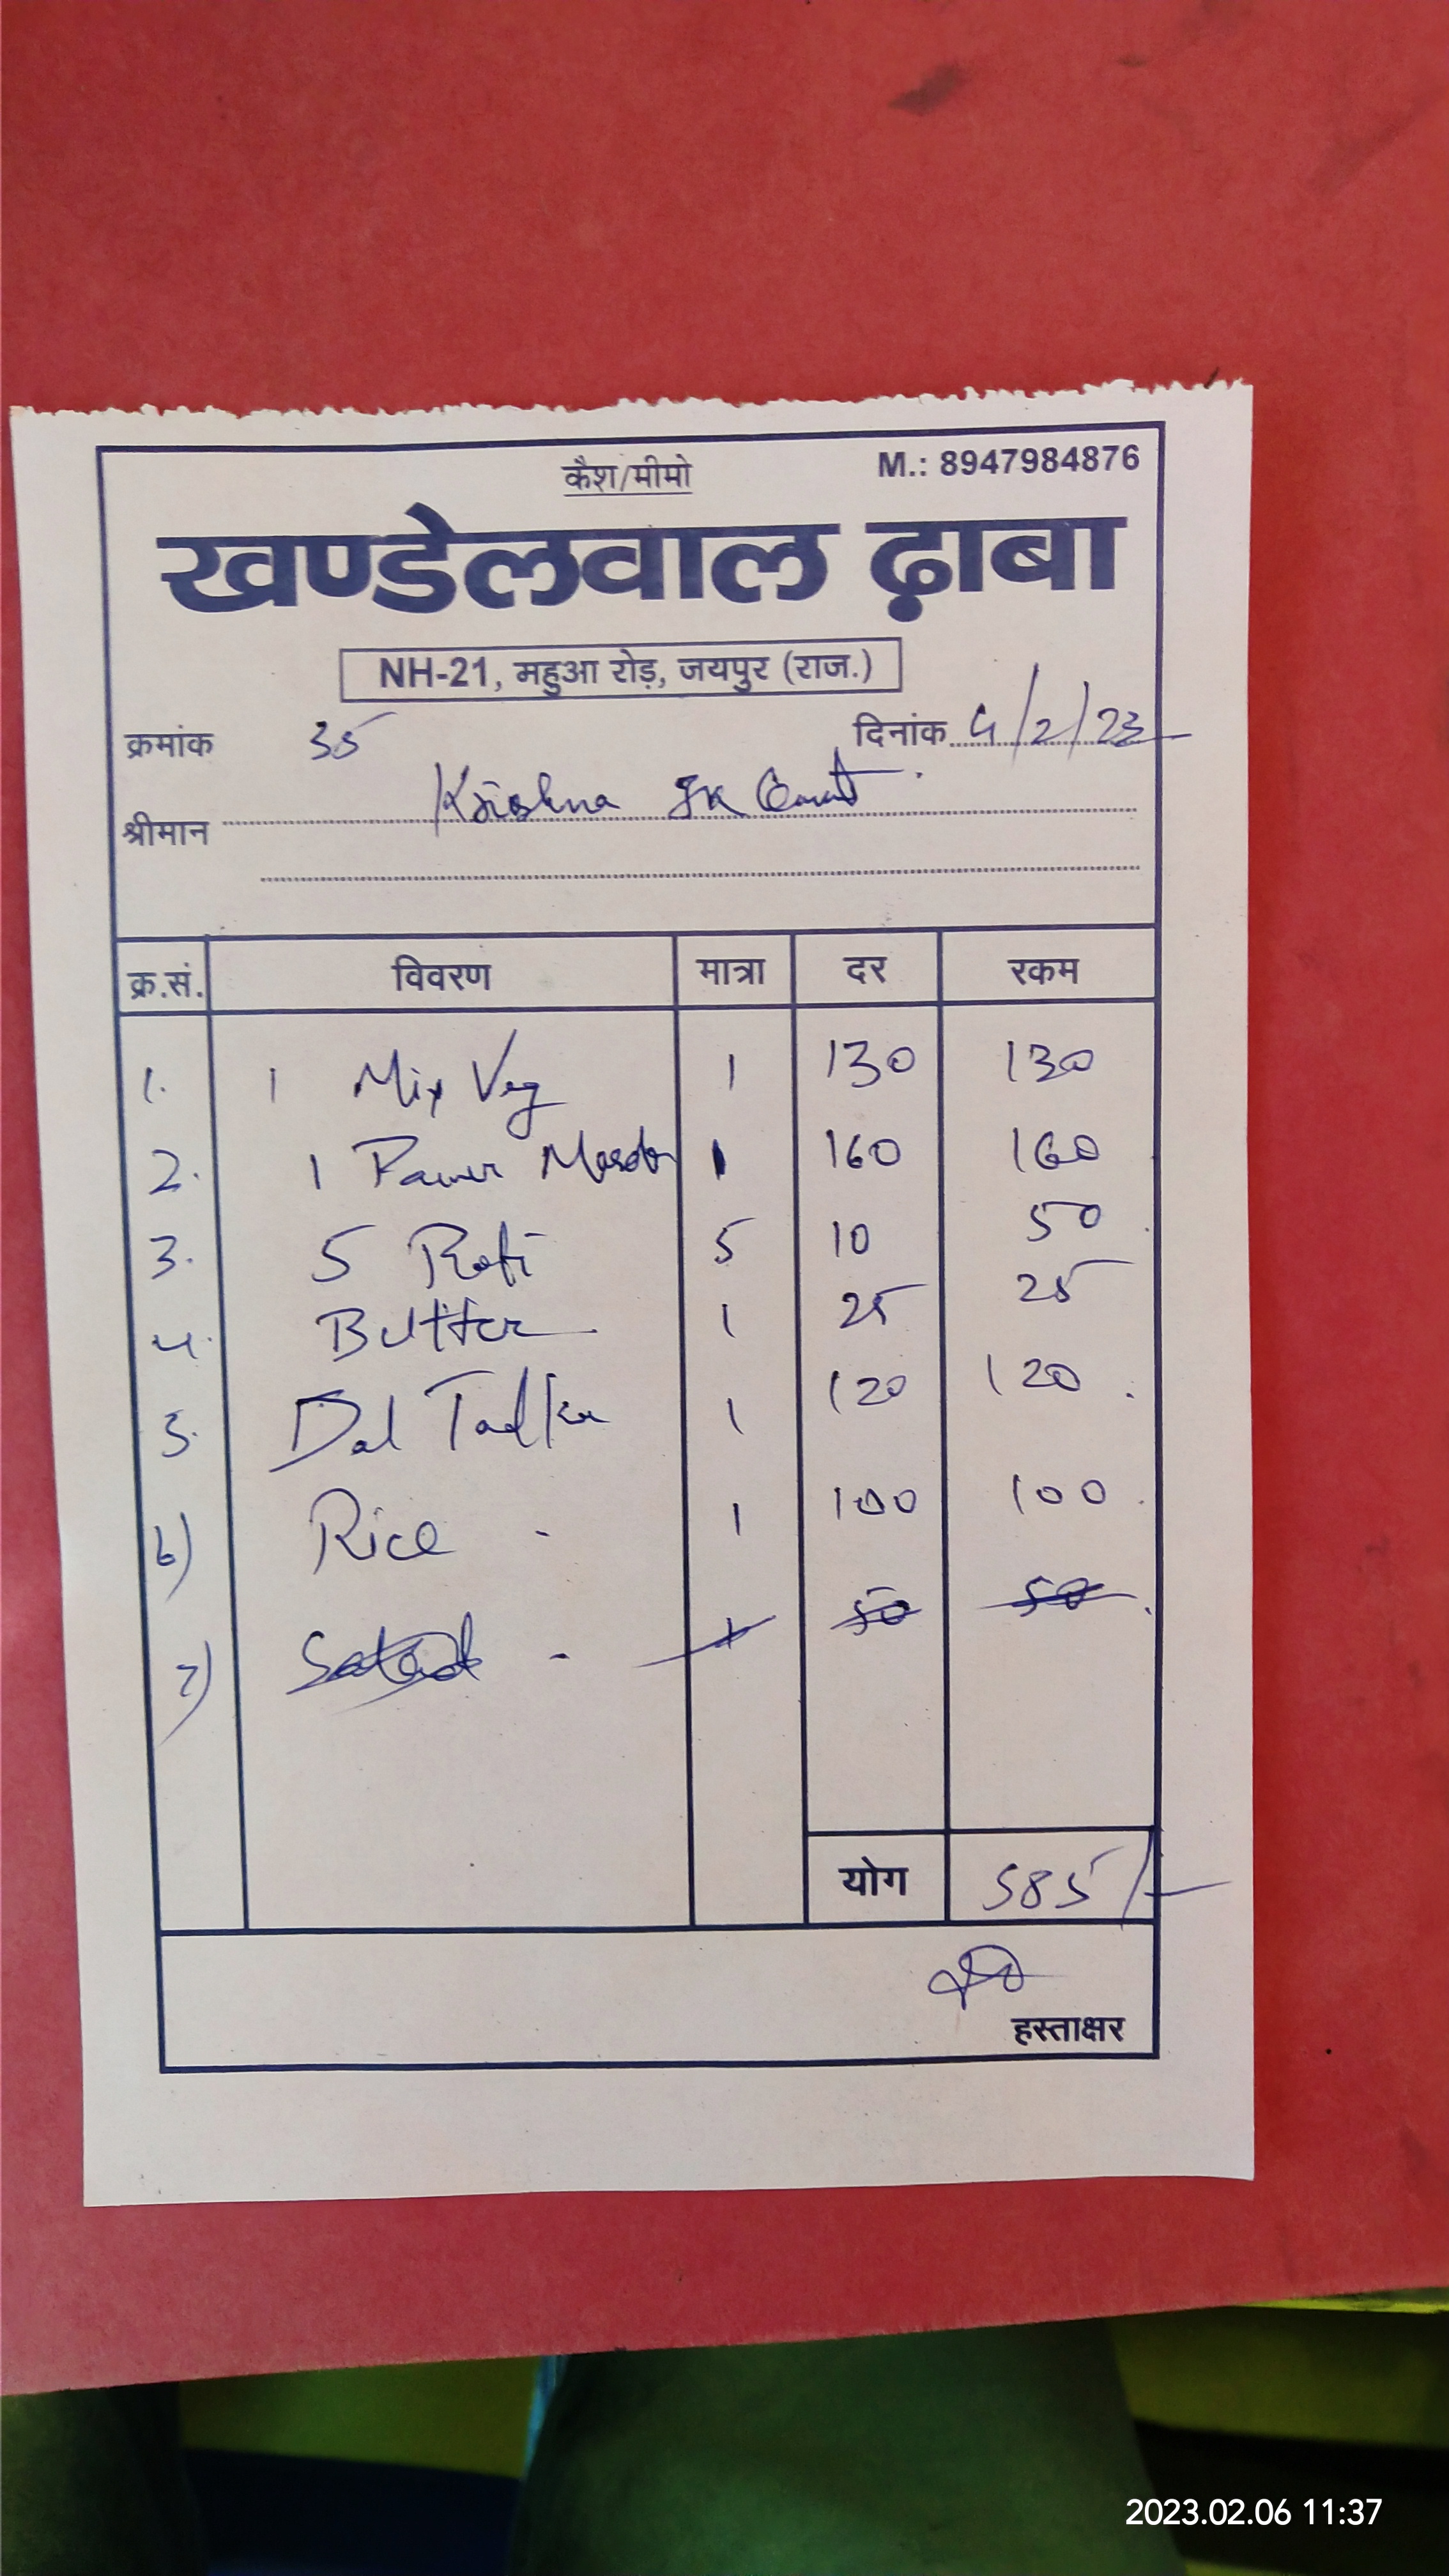 कैश/मीमो M.: 8947984876
खण्डेलवाल ढ़ाबा
NH-21, महुआ रोड़, जयपुर (राज.)
क्रमांक 35 दिनांक 4/2/23
श्रीमान Krishna
क्र.सं. विवरण मात्रा दर रकम
1. 1 Mix Veg 1 130 130
2. 1 Paneer 1 160 160
3. 5 Roti 5 10 50
4. Butter 1 25 25
5. Dal Tadka 1 120 120
6) Rice - 1 100 100
7) Salad - 1 50 50
योग 585/-
हस्ताक्षर
2023.02.06 11:37